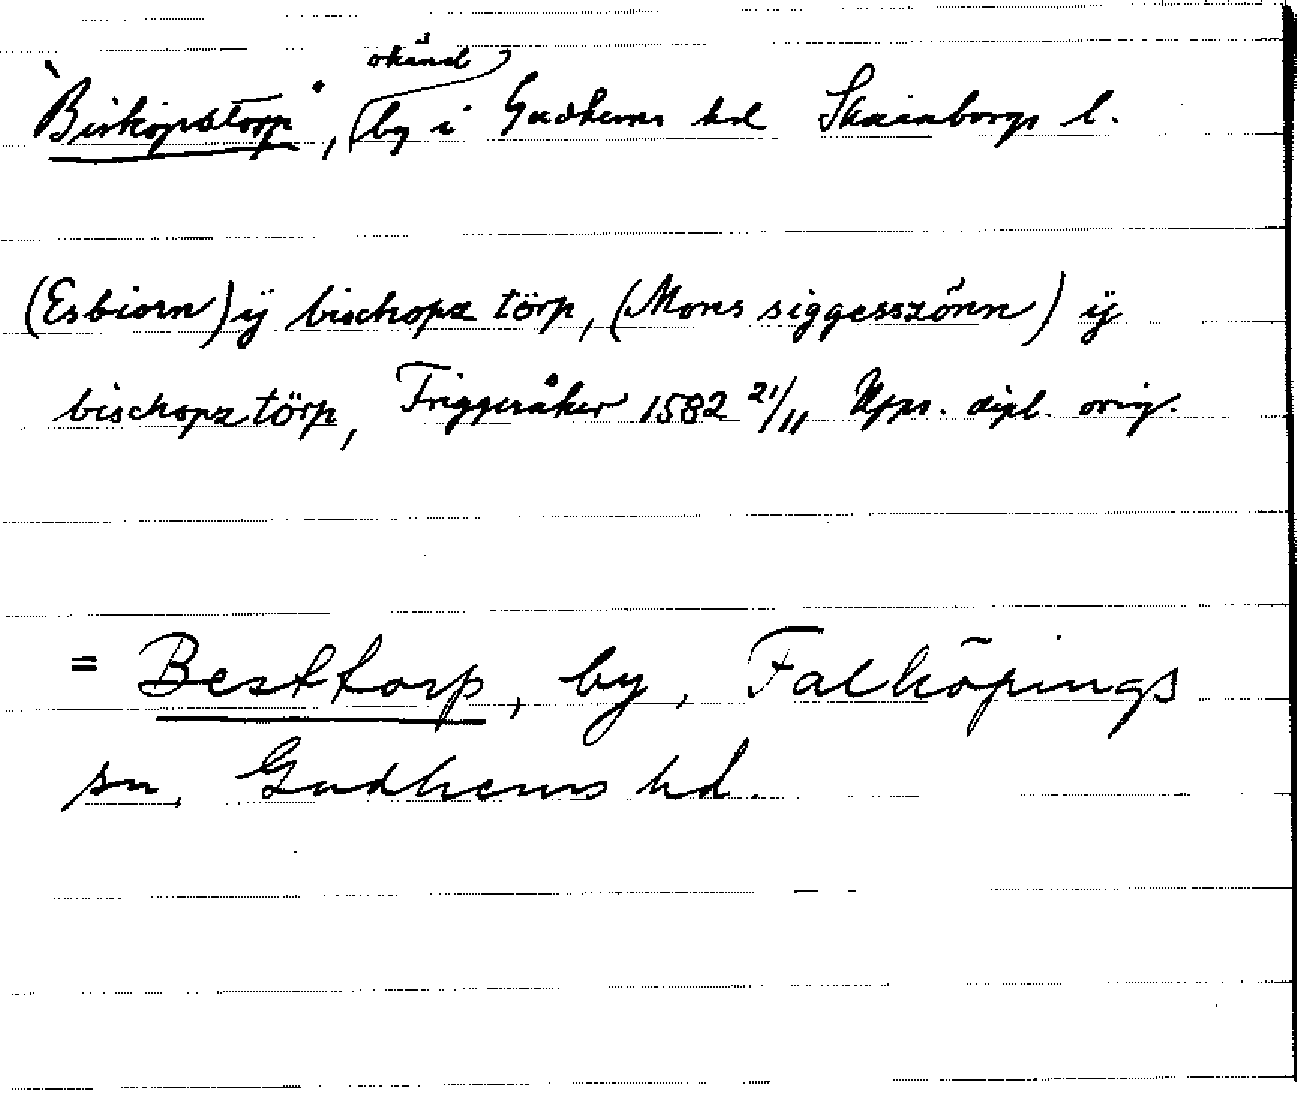 "Biskopstorp", okänd by i Gudhems hd Skaraborgs l.
(Esbiorn) ÿ bischopz törp, (Mons siggesszönn) ÿ
bischopz törp, Friggeråker 1582 21/11 Upps. dipl. orig.
= Besttorp, by, Falköpings
sn, Gudhems hd.